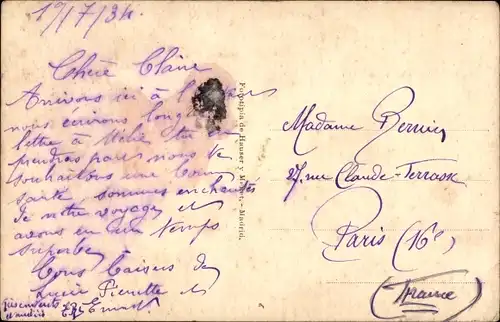 19/7/34.
Chère Claire
Arrivons ici à
nous envoyons longue
lettre à
pour nous
souhaitons une bonne
santé sommes enchantés
de notre voyage et
avons eu un temps
superbe
Bons baisers de
Lucie Pierrette et
Ernest
Fototipia de Hauser y Menet.-Madrid.
Madame Bernier
27, rue Claude-Terrasse
Paris (16e)
(France)